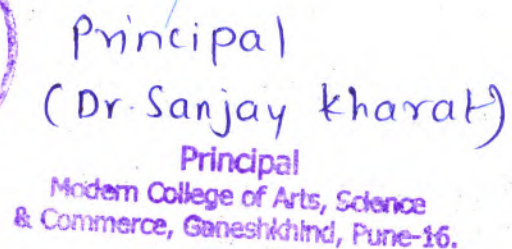 Principal
(Dr. Sanjay Kharat)
Principal
Modern College of Arts, Science
& Commerce, Ganeshkhind, Pune-16.